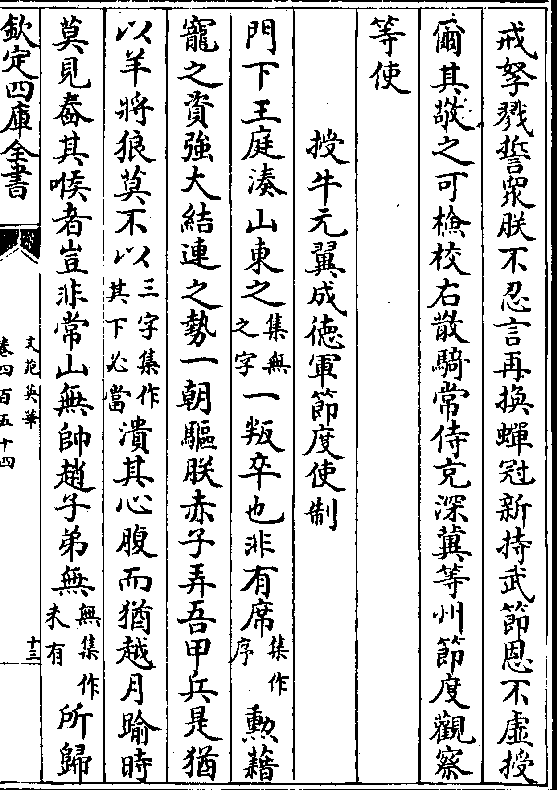 戒孥戮誓衆朕不忍言再換蟬冠新持武節恩不虚授
爾其敬之可檢校右散騎常侍充深冀等州節度觀察
等使
授牛元翼成徳軍節度使制
門下王庭湊山東之集無之字一叛卒也非有席集作序勲籍
寵之資強大結連之勢一朝驅朕赤子弄吾甲兵是猶
以羊將狼莫不以三字集作其下必當潰其心腹而猶越月踰時
莫見舂其喉者豈非常山無帥趙子弟無無集作未有所歸
欽定四庫全書
文苑英華
卷四百五十四
十三